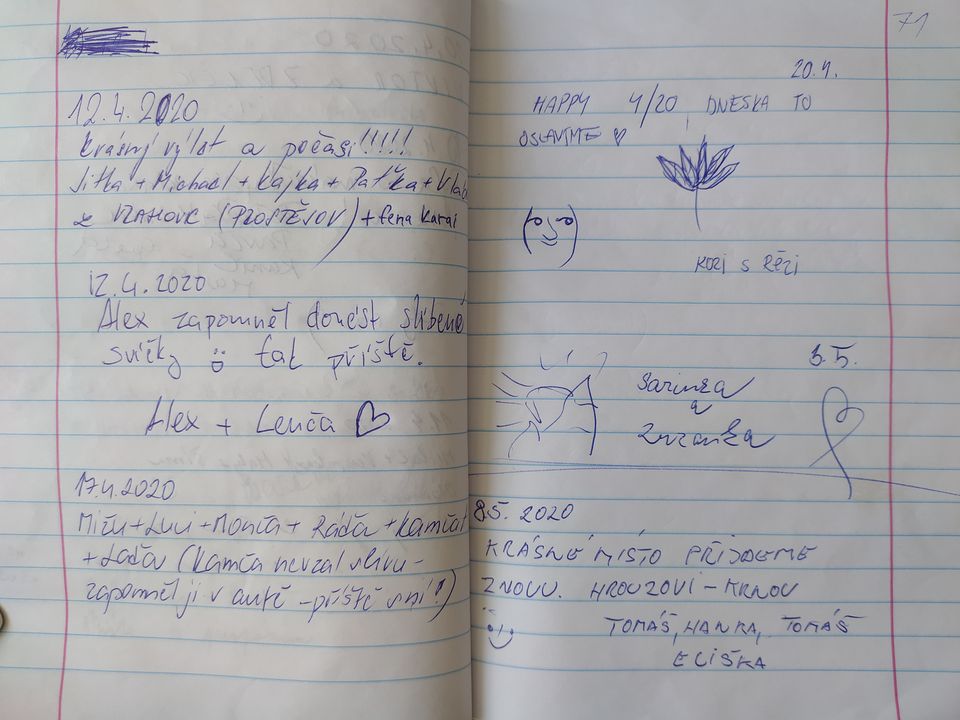 12.4.2020
Krásný výlet a počasí!!!!!
Jitka + Michael + Kajka + Paťka + Vlaď
z VRAHOVIC (PROSTĚJOV) + fena Karai
12.4.2020
Alex zapomněl donést slíbené
svíčky tak příště.
Alex + Lenča
17.4.2020
+ Luci + Monča + Ráďa + Kamčat
+ Laďa (Kamča nevzal slivu-
zapoměl ji v autě - příště s ní!)
71
20.4.
HAPPY 4/20 DNESKA TO
OSLAVÍME
KOZI S RÉZI
3.5.
Sarinka
a
Zuzanka
8.5. 2020
KRÁSNÉ MÍSTO PŘIJDEME
ZNOVU. HROUZOVI - KRNOV
TOMÁŠ, HANKA, TOMÁŠ
ELIŠKA